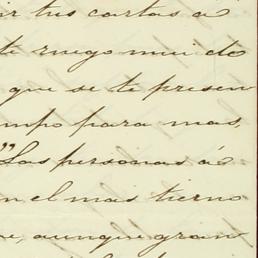 ir tus cartas a
te ruego mui do
que se te presen
mpo para mas,
"Las personas á
n el mas tierno
e, aunque gran